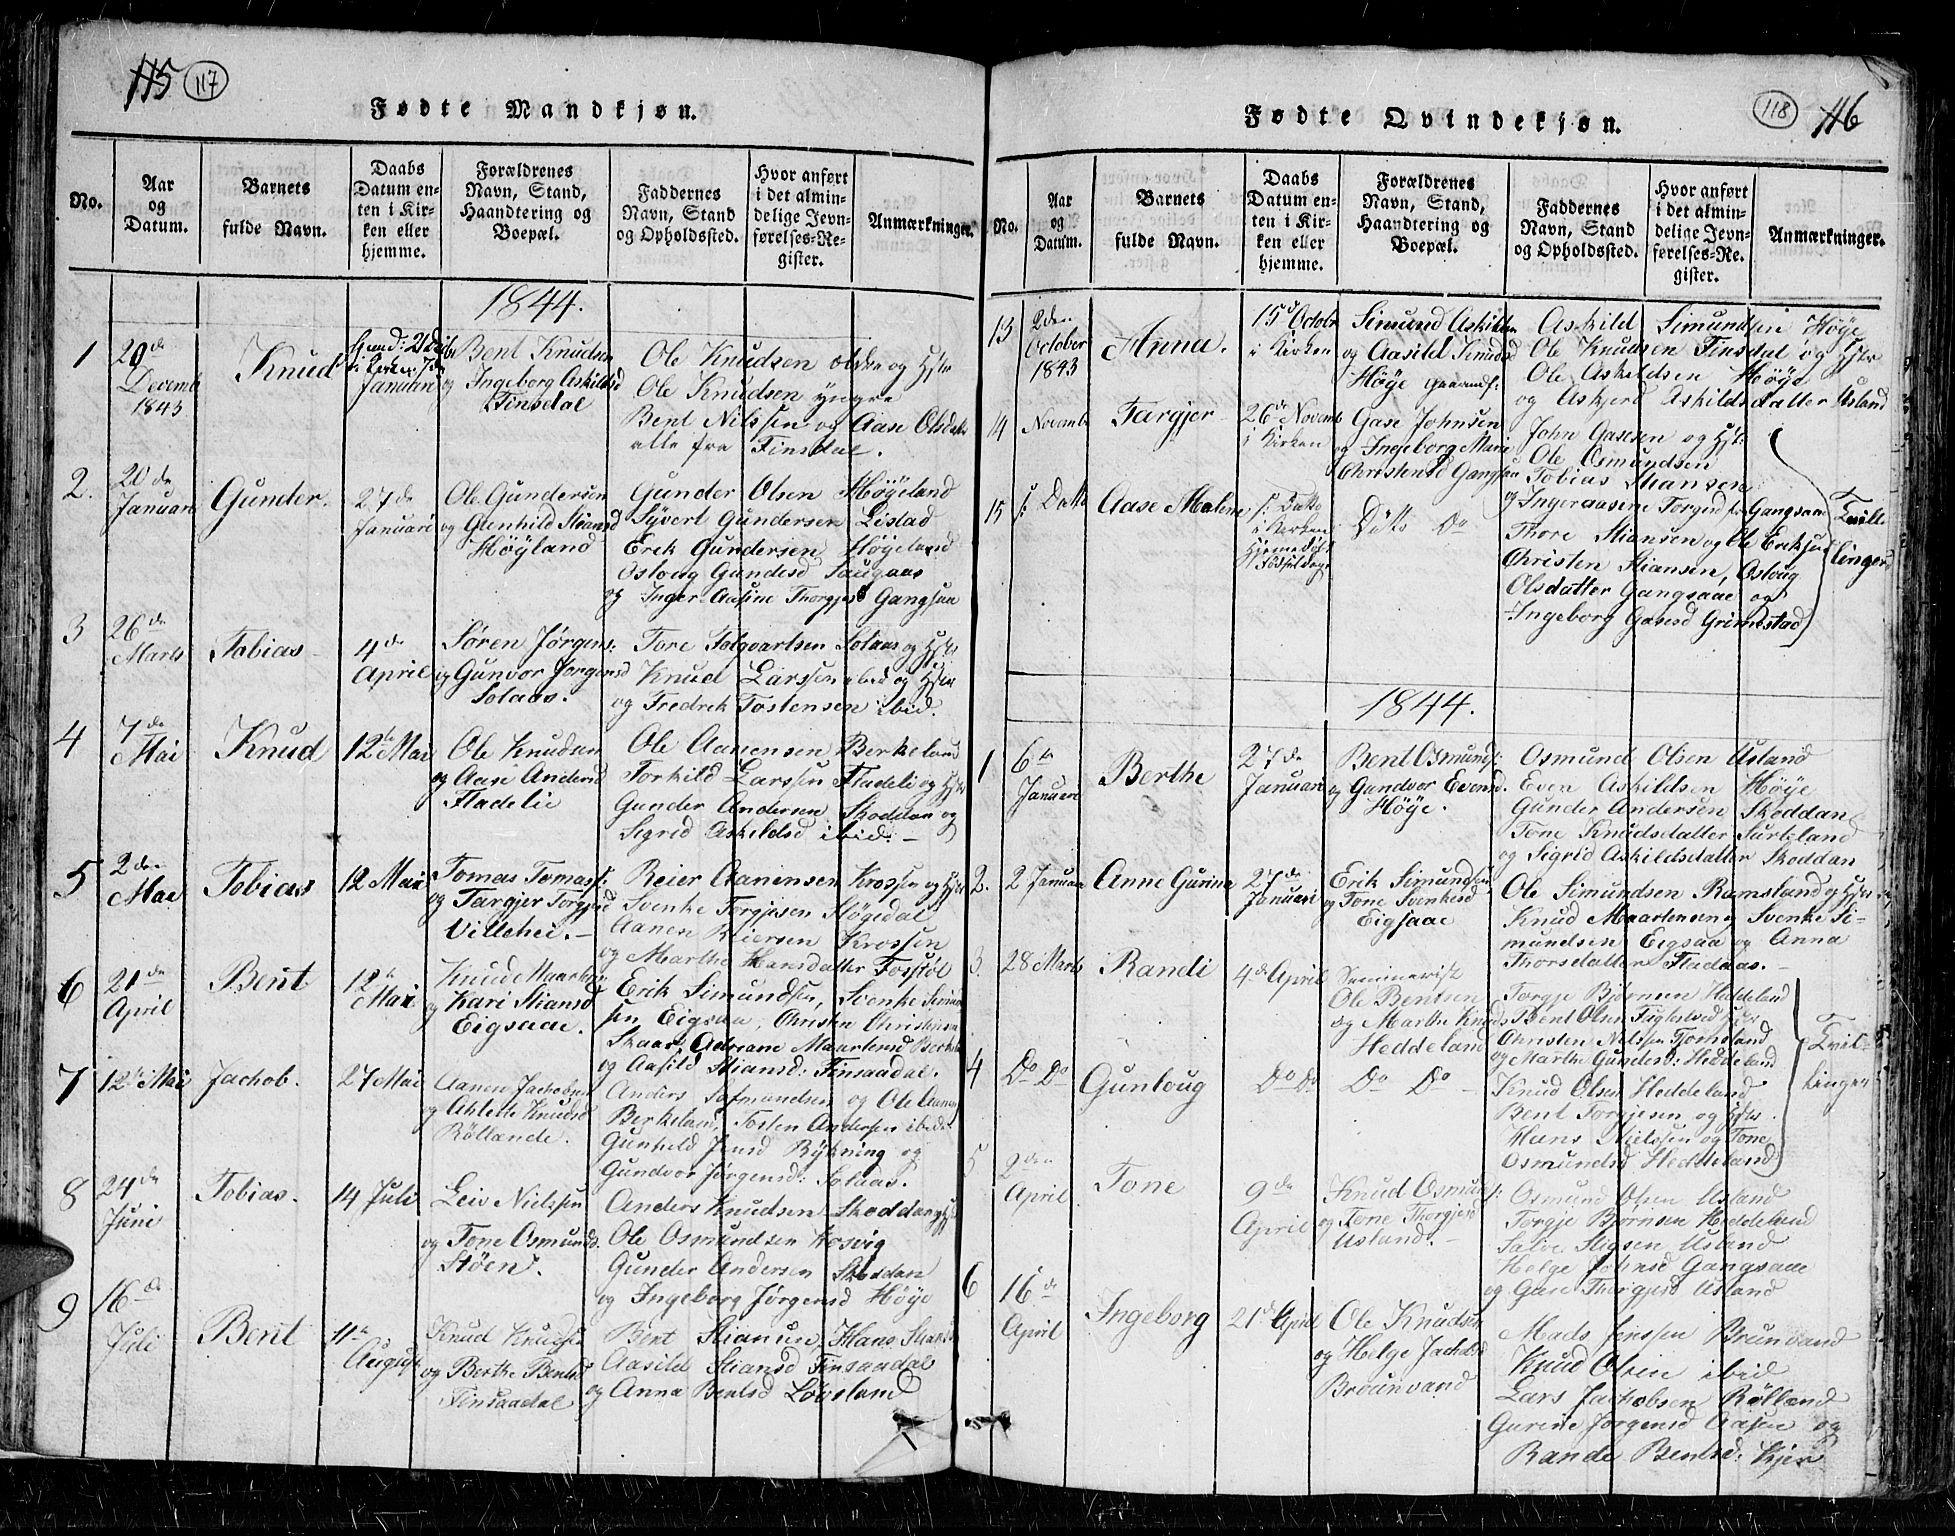 115 117
Fødte Mandkjøn.
No.
Aar
og
Datum.
Barnets
fulde Navn.
Daabs
Datum en-
ten i Kir-
ken eller
hjemme.
Forældrenes
Navn, Stand,
Haandtering og
Boepæl.
Faddernes
Navn, Stand
og Opholdssted.
Hvor anført
i det almin-
delige Jevn-
førelses-Re-
gister.
Anmærkninger.
1844.
1
20de
Decemb
1843
Knud
Januari
Bent Knudsen
og Ingeborg Askildsd
Finsdal
Ole Knudsen ældre og Hstr
Ole Knudsen yngre
Bent Nilssen og Aase Olsdatt
alle fra Finsdal.
2.
20de
Januari
Gunder.
27de
Januari
Ole Gundersen
og Gunhild Stiansd
Høyland
Gunder Olsen Høyeland
Syvert Gundersen Listad
Erik Gundersen Høyeland
Osloug Gundersd Laugaas
og Inger Aasine Thorgjesd Gangsaa
3
26de
Marts
Tobias
4de
April
Søren Jørgens:
og Gunvor Jørgensd
Solaas.
Tore Tolvartsen Solaas og Hstr
Knud Larssen ibid og Hstr
og Fredrek Tostensen ibid.
4
7de
Mai
Knud
12te Mai
Ole Knudsen
og Aase Andersd
Fladelie
Ole Aanensen Berkeland
Torkild Larssen Fladeli og Hstr
Gunder Andersen Skoddan og
Sigrid Askildsd ibid.-
5
2den
Mai
Tobias
12 Mai
Tomas Tomass:
og Targjer Torgjesd
Villehei.-
Reier Aanensen Krossen og Hstr
Svenke Torgjesen Høgedal
Aanen Reiersen Krossen
og Marthe Hansdatter Fosstøl
6
21de
April
Bent
12te
Mai
Knud Maartens
og Kari Stiansd
Eigsaae.
Erik Simundsen, Svenke Simun
sen Eigsaa, Christen Christensen
Skaar, Adriane Maartensd Berkela
og Aasild Stiansd: Finsaadal.
7
12te Mai
Jachob.
27 Mai
Aanen Jachobsen
og Ahlette Knudsd
Røllande.
Anders Salmandsen og Ole Aanens
Berkeland, Tosten Andersen ibid
Gunheld Jensd Rykning og
Gundvor Jørgensd: Solaas.
8
24de
Juni
Tobias.
14 Juli
Leiv Nielssen
og Tone Osmunds.
Støen.
Anders Knudsen Skoddan og Hst
Ole Osmundsen Kosvig
Gunder Andersen Skoddan
og Ingeborg Jørgensd Høye
9
16de
Juli
Bent
11te
August
Knud Knudsen
og Berthe Bentsd
Finsaadal
Bent Stiansen, Hans Stians
Aasild Stiansd Finsaadal
og Anna Bentsd Løvsland
118 116
Fødte Qvindekjøn.
No.
Aar
og
Datum.
Barnets
fulde Navn.
Daabs
Datum en-
ten i Kir-
ken eller
hjemme.
Forældrenes
Navn, Stand,
Haandtering og
Boepæl.
Faddernes
Navn, Stand
og Opholdssted.
Hvor anført
i det almin-
delige Jevn-
førelses-Re-
gister.
Anmærkninger.
13
2den
October
1843
Anna.
15d Octobr
i Kirken
Simund Askildsen
og Aasild Knudsd
Høye
Askild Simundsen Høye
Ole Knudsen Finsdal og Hstr
Ole Askildsen Høye
og Askjerd Askildsdatter Usland
14
Novemb
Targjer
26de Novemb
i Kirken
Gase Johnsen
og Ingeborg Marie
Christensd Gangsaa
John Gasesen og Hst:
Ole Osmundsen
Tobias Stiansen
og Ingeraasine Torgjesd fra Gangsaae
15
Ditto
Aase Malene
Ditto
i Kirken
Ditto Do
Thore Stiansen og Ole Eriksen
Christen Stiansen, Osloug
Olsdatter Gangsaae og
Ingeborg Gasesd Grimestad
Tvill
linger
1844.
1
6te
Januari
Berthe
27de
Januari
Bent Osmunds:
og Gundvor Evensd.
Høye.
Osmund Olsen Usland
Even Askildsen Høye
Gunder Andersen Skoddan
Tone Knudsdatter Surteland
og Sigrid Askildsdatter Skoddan
2.
2 Januar
Anne Gurine
27de
Januari
Erik Simundsen
og Tone Svenkesd
Eigsaae
Ole Simundsen Ramsland og Hstr
Knud Maartensen og Svenke Si-
mundsen Eigsaa og Anna
Thorsdatter Fladaas.-
3.
28 Marts
Randi
4de April
Seminarist
Ole Bentsen
og Marthe Knuds
Heddeland
Torgje Bjørnsen Heddeland
Bent Olsen Fighelsed Hstr
Christen Nilssen Tjomsland
og Marthe Gundersd: Heddeland
4
Do Do
Gunloug
Do Do
Do Do
Knud Olsen Heddeland
Bent Torgjesen og Hstr.
Hans Nielssen og Tone
Osmundsd Heddeland
Tvil-
linger
5
2den
April
Tone
9de
April
Knud Osmunds:
og Tone Thorgjesd
Usland.-
Osmund Olsen Usland
Torgje Bjørnsen Heddeland
Salve Stigsen Usland
Helge Johnsd Gangsaae
og Gase Thorgjesd Usland
6
16de
April
Ingeborg
21de April
Ole Knudsen
og Helge Jachobsd
Bruunvand
Mads Jenssen Brunvand
Knud Olsen ibid
Lars Jachobsen Røllend
Gurine Jørgensd Aasen og
Rande Bentsd: Kjer